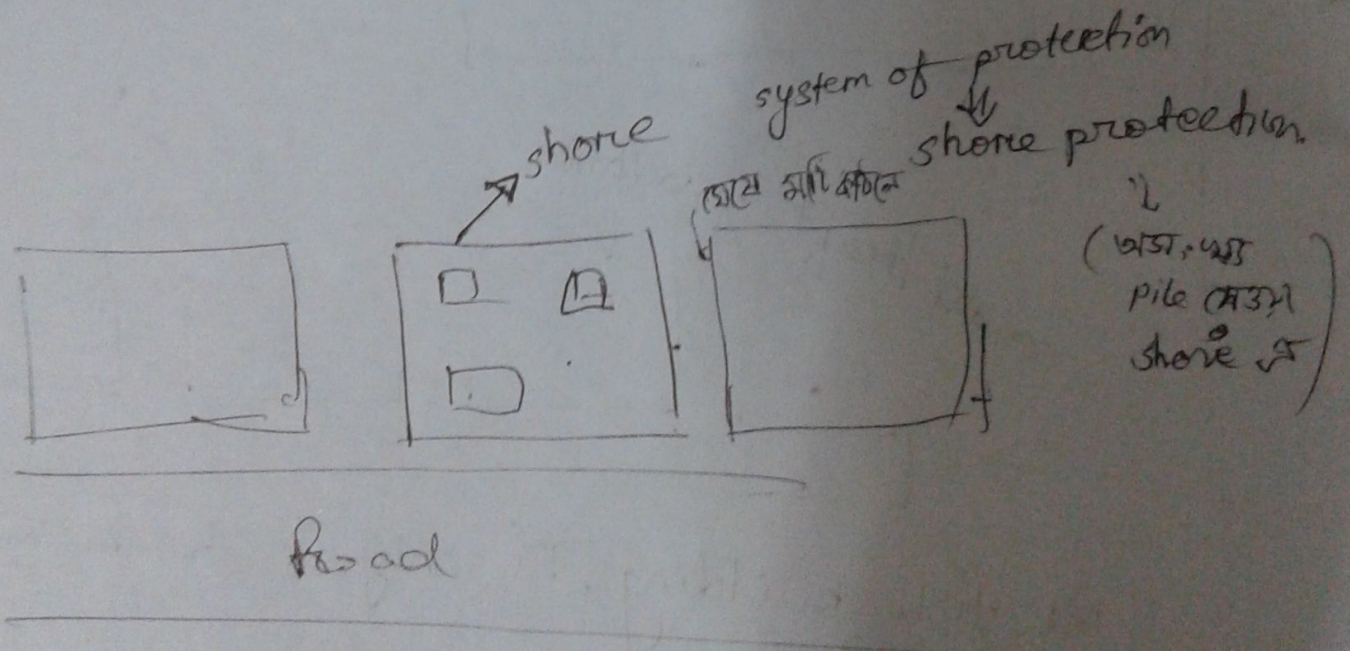 system of protection
shore
shore protection.
ঘেষে মাটি কাটলে
pile দেওয়া
shore
Road